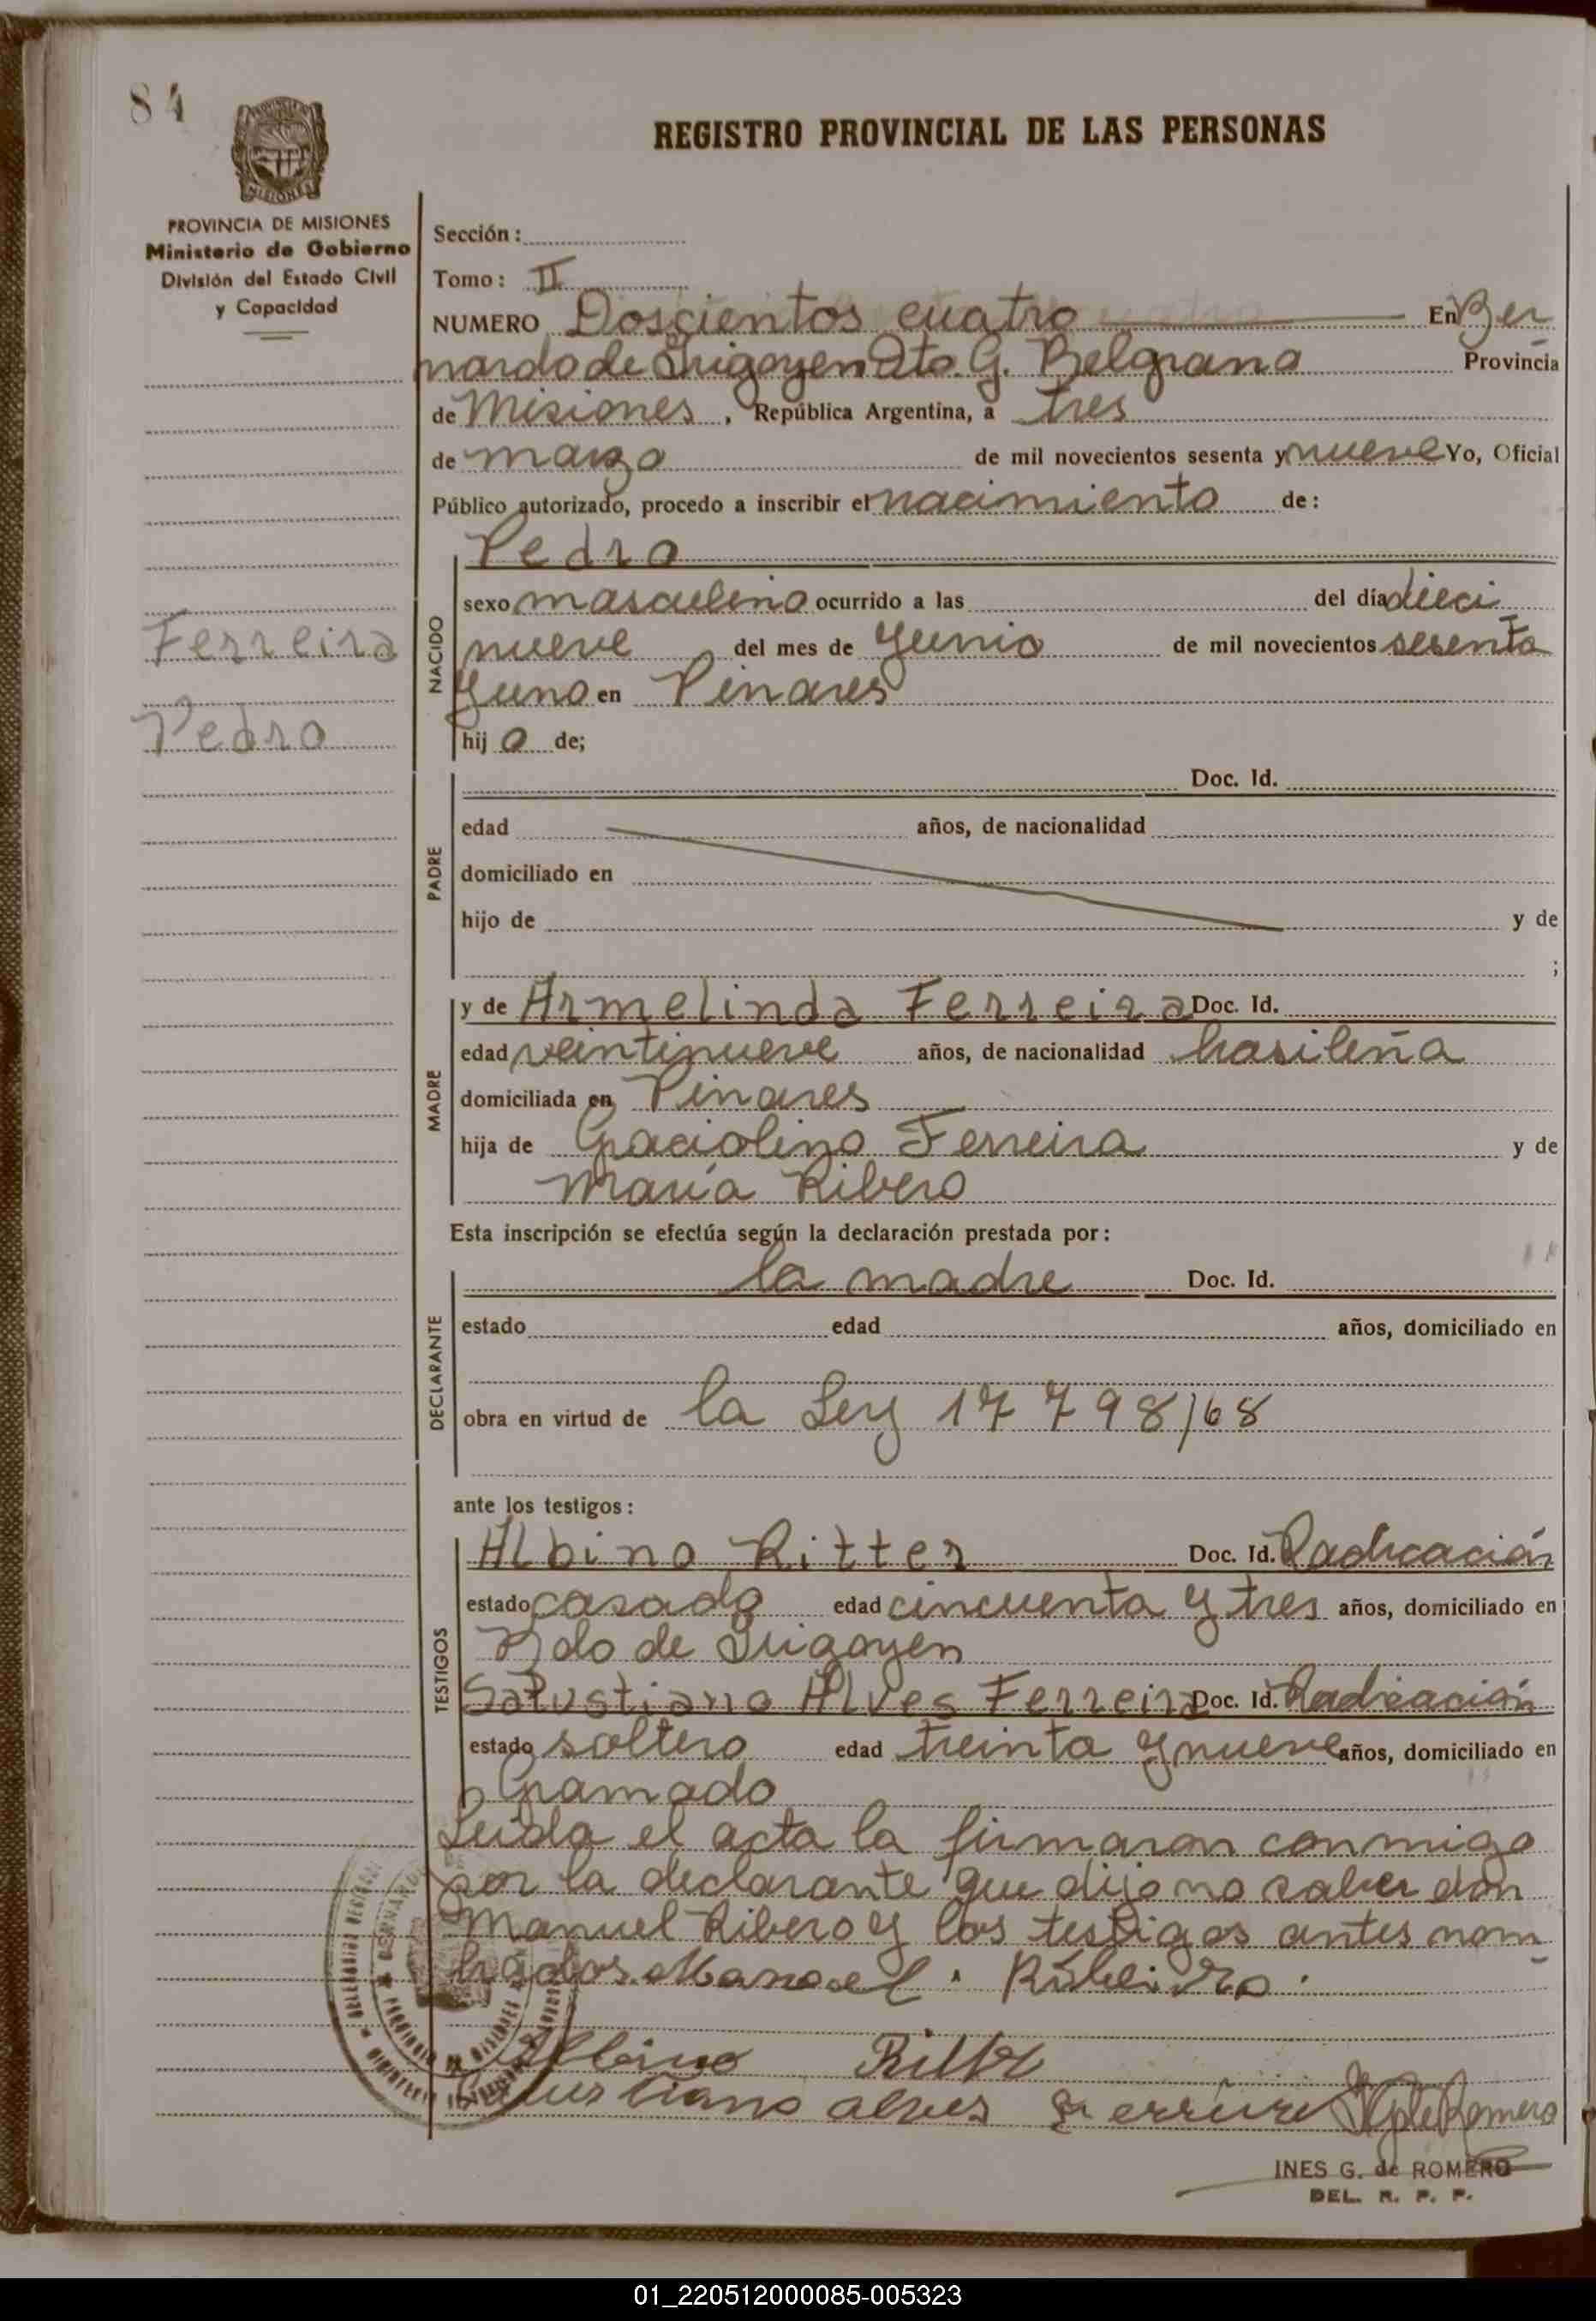 84
MISIONES
PROVINCIA DE MISIONES
Ministerio de Gobierno
División del Estado Civil
y Capacidad
REGISTRO PROVINCIAL DE LAS PERSONAS
Sección:
Tomo: II
NUMERO Doscientos cuatro En Ber
nardo de Irigoyen Dto. G. Belgrano Provincia
de Misiones, República Argentina, a tres
de marzo de mil novecientos sesenta y nueve Yo, Oficial
Público autorizado, procedo a inscribir el nacimiento de:
Ferreira
Pedro
NACIDO
Pedro
sexo masculino ocurrido a las del día dieci
nueve del mes de Junio de mil novecientos sesenta
y uno en Pinares
hijo de;
PADRE
Doc. Id.
edad años, de nacionalidad
domiciliado en
hijo de y de
;
MADRE
y de Armelinda Ferreira Doc. Id.
edad veintinueve años, de nacionalidad brasileña
domiciliada en Pinares
hija de Graciolino Ferreira y de
María Ribero
Esta inscripción se efectúa según la declaración prestada por:
DECLARANTE
la madre Doc. Id.
estado edad años, domiciliado en
obra en virtud de la Ley 17798/68
ante los testigos:
TESTIGOS
Albino Ritter Doc. Id. Radicación
estado casado edad cincuenta y tres años, domiciliado en
Bdo de Irigoyen
Salustiano Alves Ferreira Doc. Id. Radicación
estado soltero edad treinta y nueve años, domiciliado en
Gramado
Leida el acta la firmaron conmigo
por la declarante que dijo no saber don
Manuel Ribero y los testigos antes nom
brados. Manoel Ribeiro.
Albino Ritter
Salustiano alves Ferreira IGdeRomero
INES G. de ROMERO
DEL. R. P. P.
01_220512000085-005323